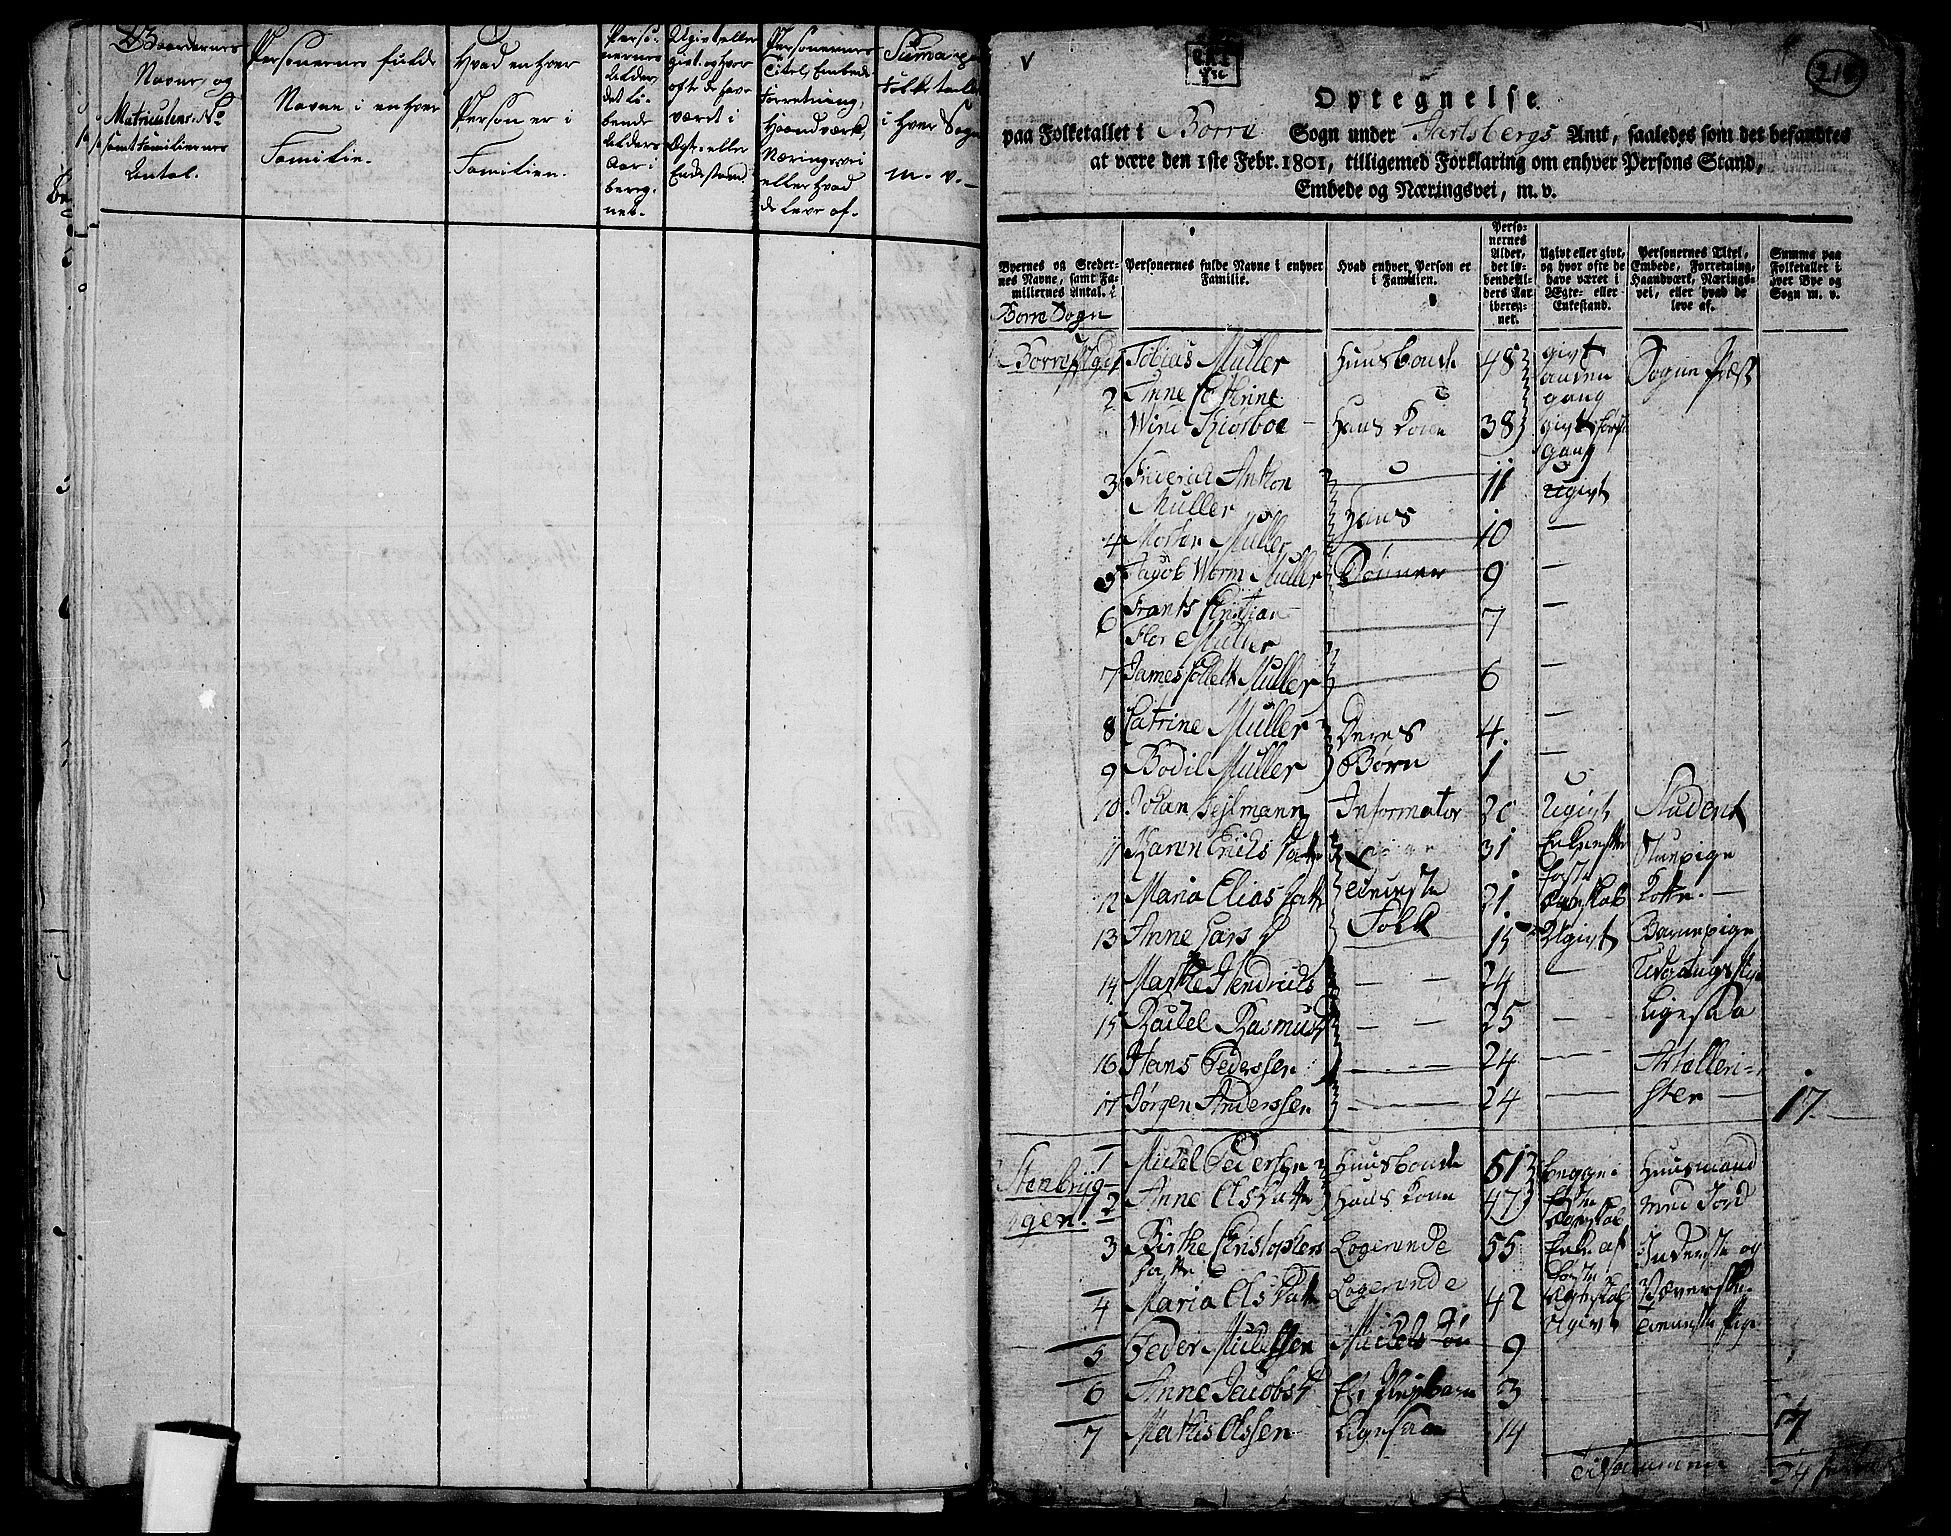 Gaardernes
Navne, og
Matriculens No
samt Familiernes
Antal.
Personernes fulde
Navne i enhver
Familie.
Hvad enhver
Person er i
Familien.
Perso-
nernes
Alder,
det Lø-
bende
Alders
Aar i
bereg-
net.
Ugivt eller
givt, og hvor
ofte de have
været i
Egte- eller
Enkestand
Personernes
Titel, Embede
Forretning,
Haandværk,
Næringsvei
eller hvad
de leve af.
Folketallet
i hver Sogn
m. v.
Optegnelse
paa Folketallet i Borre Sogn under Jarlsbergs Amt, saaledes som det befandtes
at være den 1ste Febr. 1801, tilligemed Forklaring om enhver Persons Stand,
Embede og Næringsvei, m. v.
Byernes og Steder-
nes Navne, samt Fa-
miliernes Antal.
Borre Sogn
Personernes fulde Navne i enhver
Familie.
Hvad enhver Person er
i Familien.
Perso-
nernes
Alder,
det lø-
bende Al-
ders Aar
ibereg-
net.
Ugivt eller givt,
og hvor ofte de
have været i
Ægte- eller
Enkestand.
Personernes Titel,
Embede, Forretning,
Haandværk, Nærings-
vei, eller hvad de
leve af.
Summa paa
Folketallet i
hver Bye og
Sogn m. v.
Tobias Muller Huusbonde 48 givt
anden
gang Sogne Præst
2 Anne Cathrine
Wine Kiørboe Hans Kone 38 givt første
gang
3 Friderich Anthon
Muller 11 Ugivt
4 Morten Muller Hans 10 —
5 Jacob Worm Muller Sønner 9 —
6 Frants Christian
Flor Muller 7 —
7 James Collett Muller 6 —
8 Catrine Muller Deres 4. —
9 Bodil Muller Børn 1 —
10 Johan Informator 20 Ugivt Student
11 Karen Erichs Datter 31 Enke efter
første Stuepige
12 Maria Elias Datter tieneste 21. Egteskab Kokke.
13 Anne Lars D Folk 15 Ugivt Barnepige
14 Marthe Hendrichs — — 24 —
15 Rachel Rasmus D — — 25 — Ligesaa
16 Hans Pederssen — 24 — Artilleri-
17 Jørgen Anderssen — 24 — ster — 17.
Stenbryg-
gen.
1 Michel Pederssen Huusbonde 51 begge i Huusmand
2 Anne Ols Datter Hans Kone 47 første
Egteskab med Jord
3 Birthe Christophers
Datter Logerende 55 Enke af
første Inderste og
4 Maria Ols Datter Logerende 42 Egteskab Væverske.
Ugivt tieneste Pige
5 Peder Michelssen Michels Søn 9
6 Anne Jacobs D Et Pleyebarn 3
7 Mathis Olssen Ligesaa 14 7
Tilsammen 24